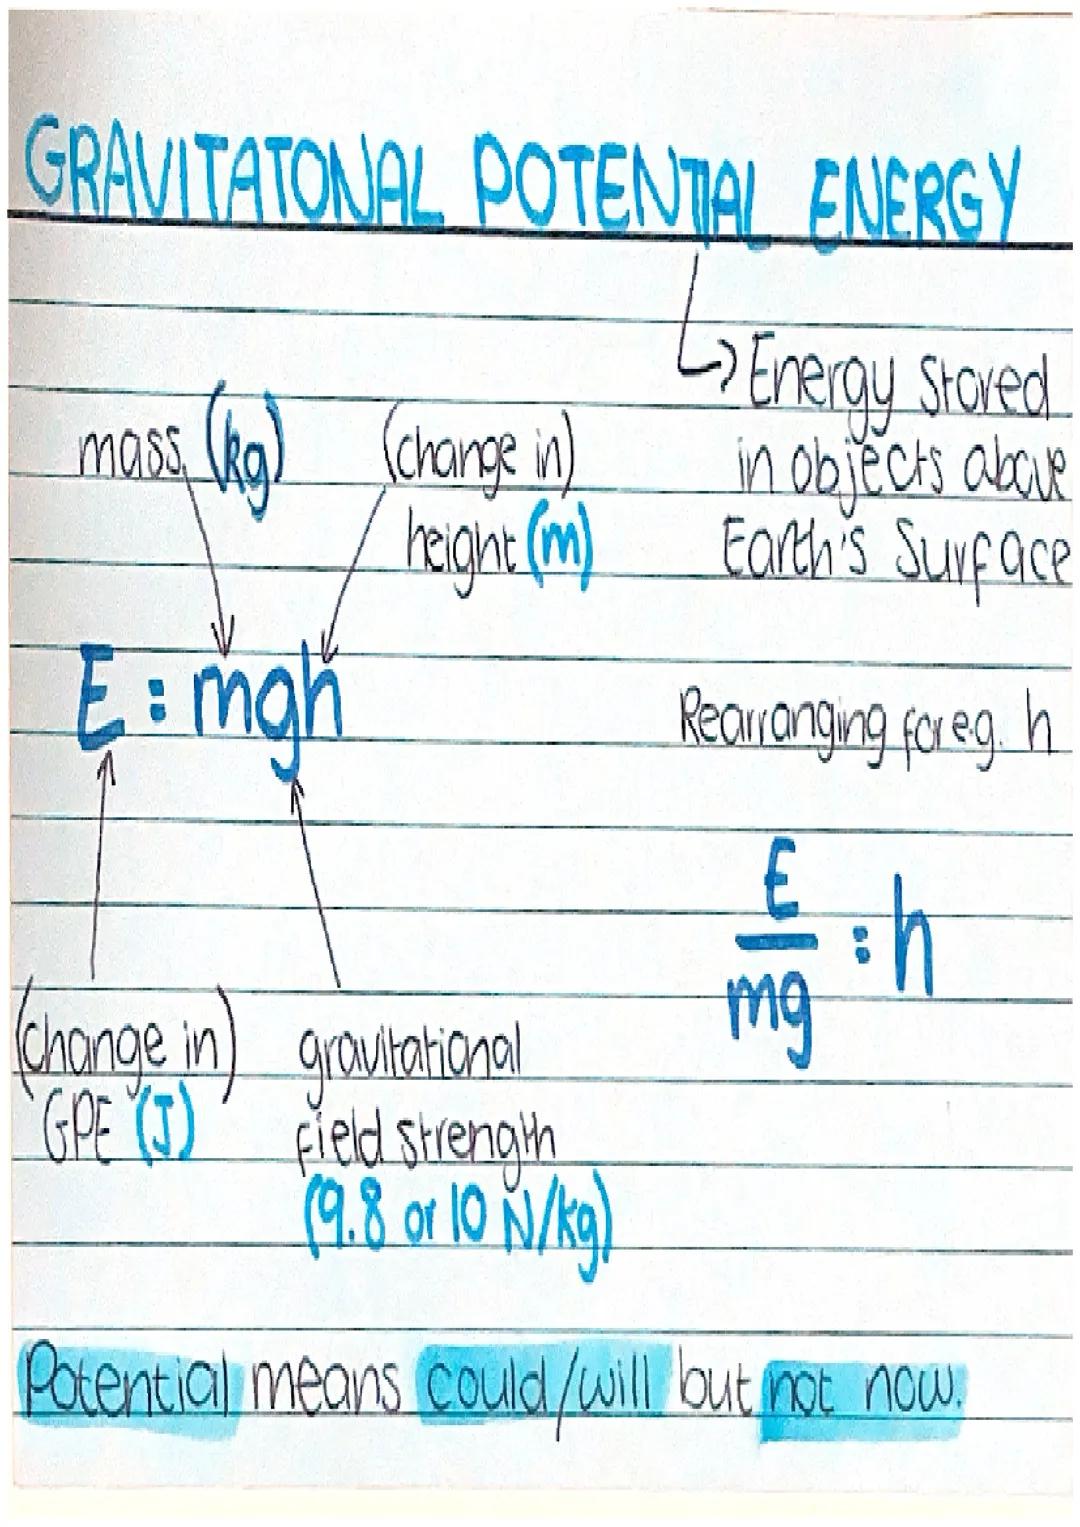 GRAVITATONAL POTENTIAL ENERGY
Energy stored
in objects above
Earth's Surface
mass (kg)
(change in)
height (m)
E = mgh
(change in)
GPE (J)
gravitational
field strength
(9.8 or 10 N/kg)
Rearranging for eg. h
E
mg
= h
Potential means could/will but not now.